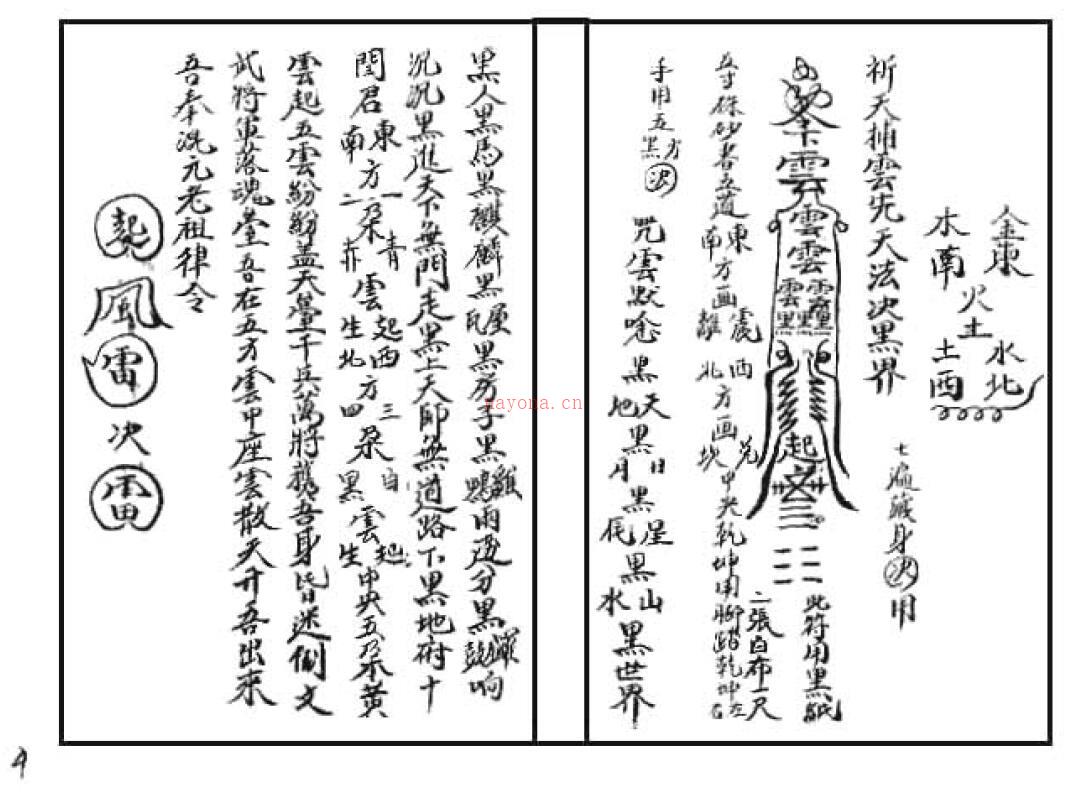 金東
木南
火土
水北
土西
祈天捕雲先天法决黑界
七遍藏身决用
雲
雲
雲
雲
黑黑黑
起
此符用黑紙
二張白布一尺
五寸硃砂書五道東南方画震離西北方画兌坎中央乾坤用腳踏乾坤左右
手用五方黑决
咒雲默唸黑天黑地黑日月黑星辰黑山水黑世界
黑人黑馬黑麒麟黑屋瓦黑房子黑雞鴨兩邊分黑鑼鼓响
沉沉黑進天下無門走黑上天師無道路下黑地府十
閻君東南方一二朵青赤雲起生西北方三四朵白黑雲起生中央五朵黃
雲起五雲紛紛盖天暈千兵萬將魏吾身皆迷倒文
武將軍落魂臺吾在五方雲中座雲散天开吾出來
吾奉混元老祖律令
風
雷
次
雷
nayona.cn